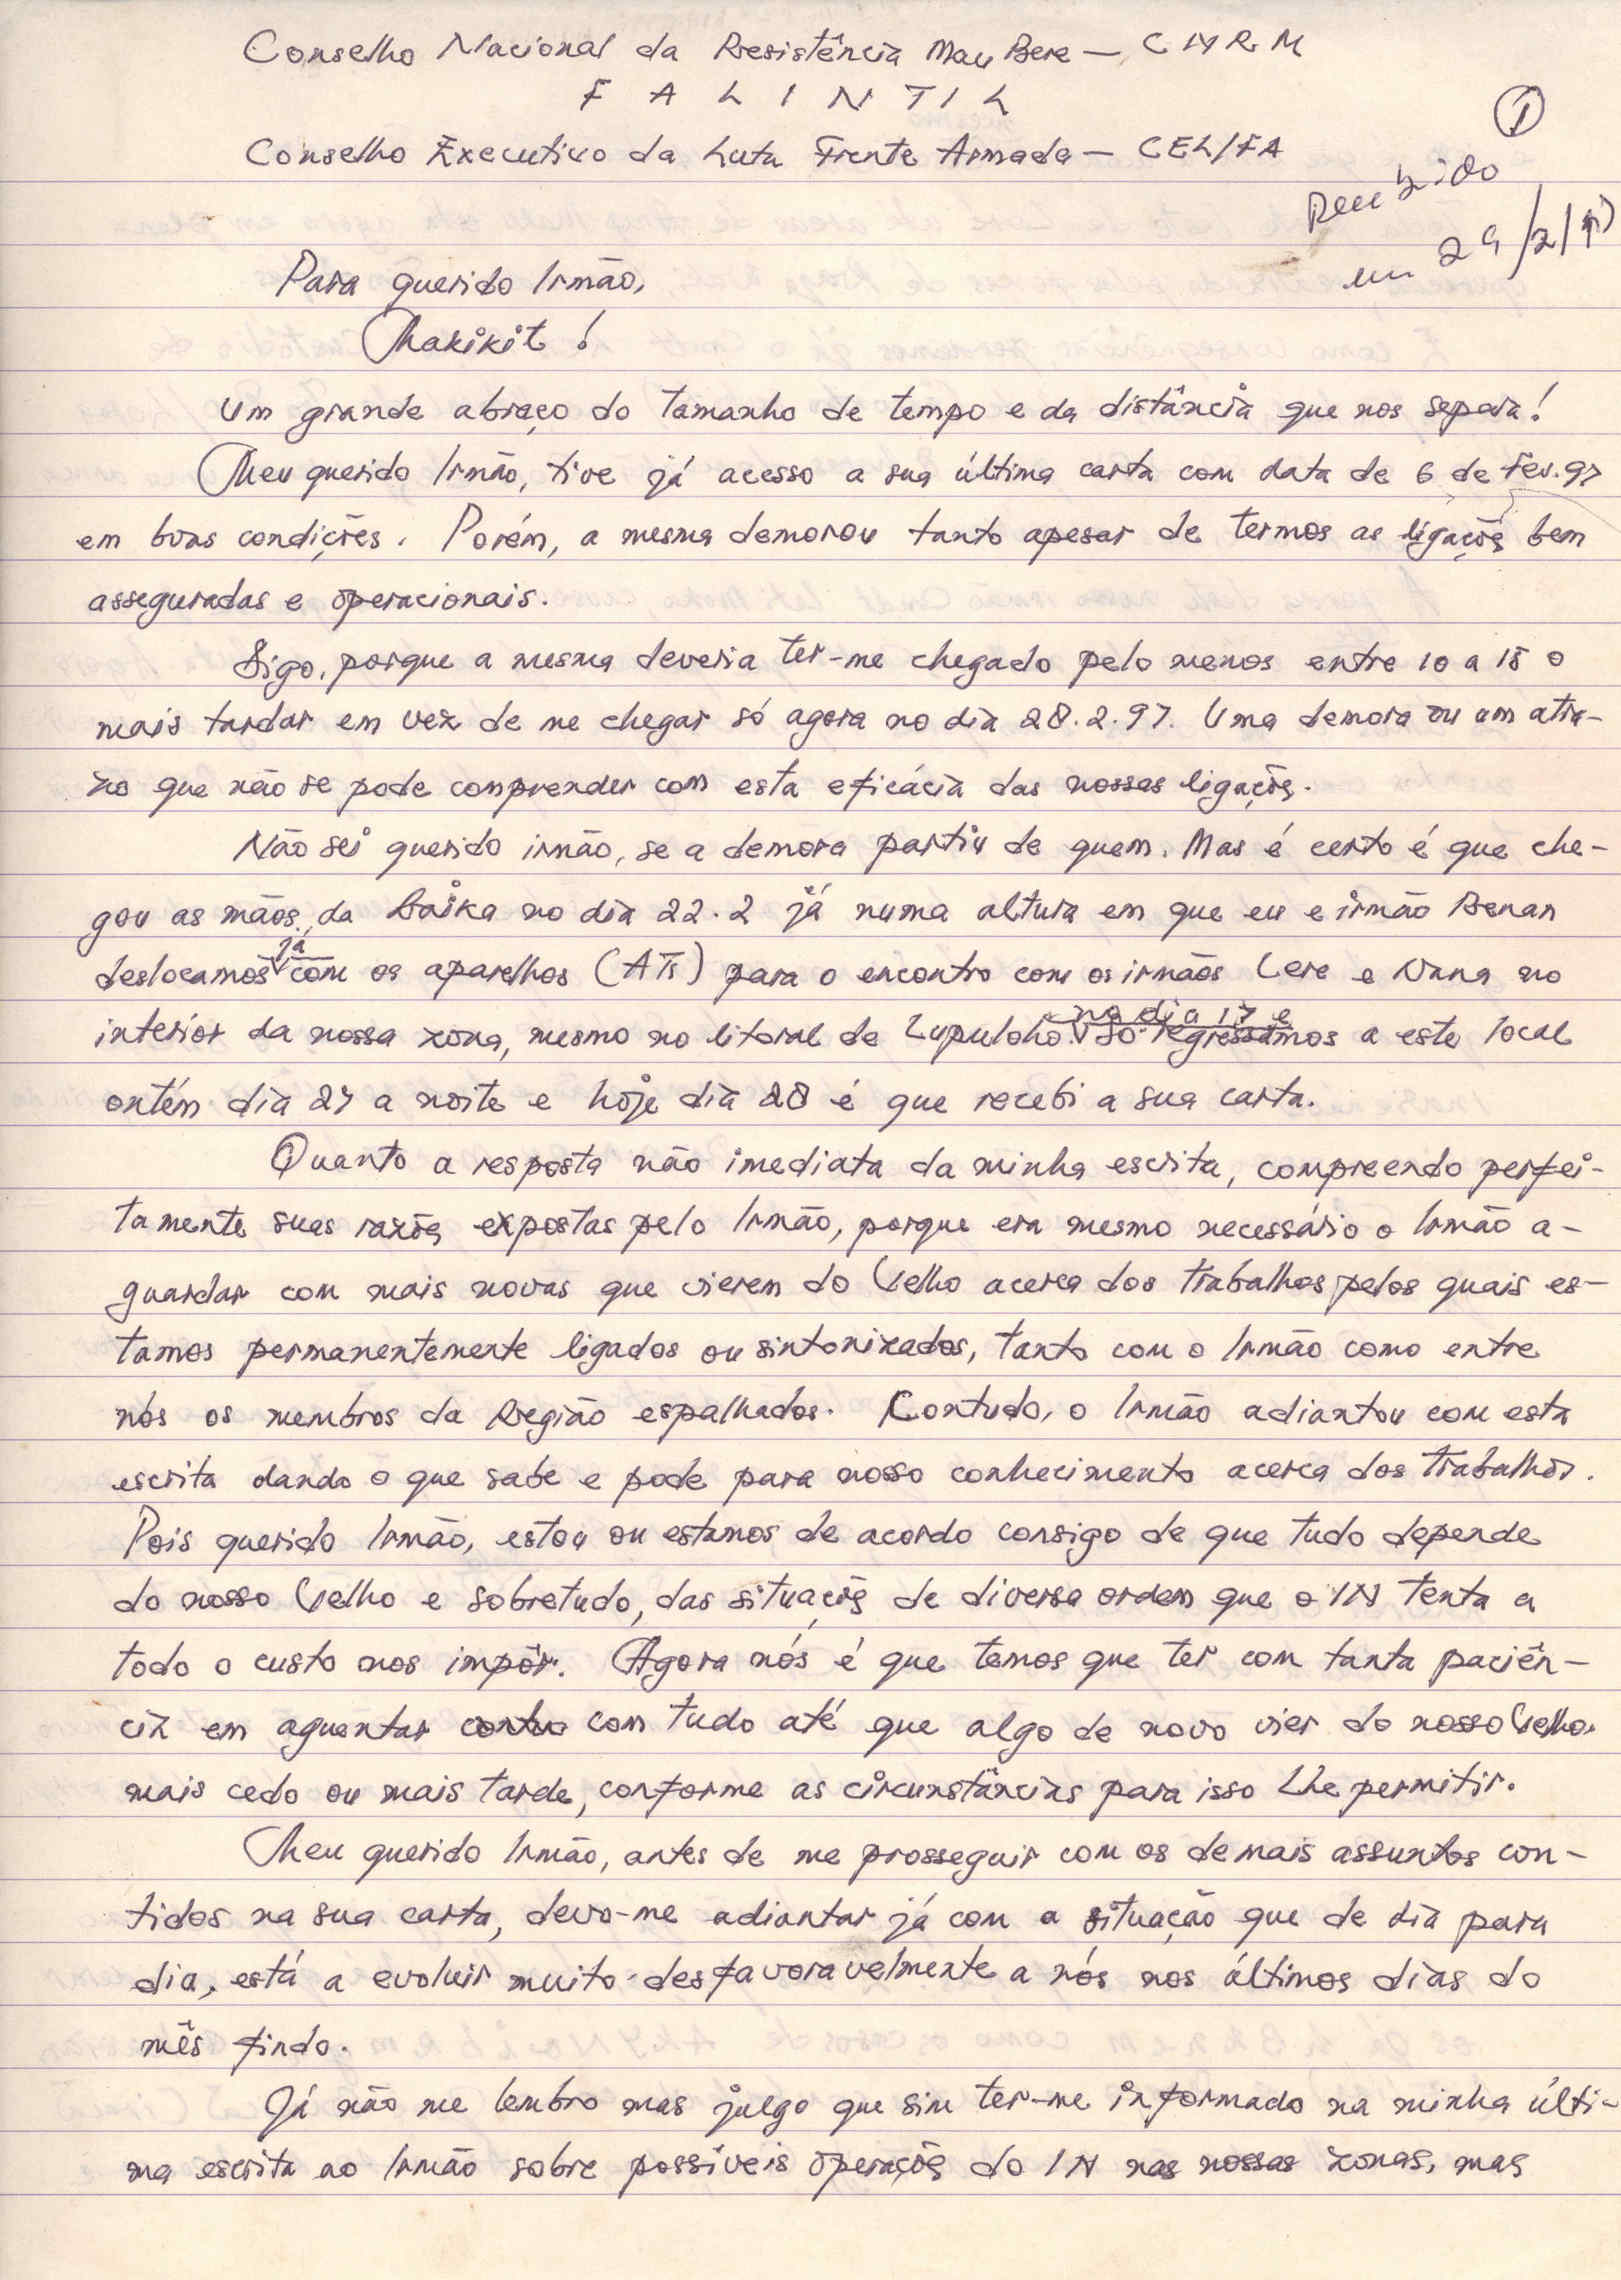 Conselho Nacional da Resistência MauBere — CNRM
FALINTIL
①
Conselho Executivo da Luta Frente Armada — CEL/FA
Recebido
em 29/2/97
Para querido Irmão,
Makikit!
Um grande abraço do tamanho de tempo e da distância que nos separa!
Meu querido Irmão, tive já acesso a sua última carta com data de 6 de Fev. 97
em boas condições. Porém, a mesma demorou tanto apesar de termos as ligaçõs bem
asseguradas e operacionais.
Digo, porque a mesma deveria ter-me chegado pelo menos entre 10 a 15 o
mais tardar em vez de me chegar só agora no dia 28.2.97. Uma demora ou um atra-
zo que não se pode comprender com esta eficácia das nossas ligaçõs.
Não sei querido irmão, se a demora partiu de quem. Mas é certo é que che-
gou as mãos da Baika no dia 22.2 já numa altura em que eu e irmão Renan
deslocamos já com os aparelhos (ATs) para o encontro com os irmãos Lere e Nana no
interior da nossa zona, mesmo no litoral de Lupuloho no dia 17 e só regressamos a este local
ontém dia 27 a noite e hoje dia 28 é que recebi a sua carta.
Quanto a resposta não imediata da minha escrita, compreendo perfei-
tamente suas razõs expostas pelo Irmão, porque era mesmo necessário o Irmão a-
guardar com mais novas que vierem do Velho acerca dos trabalhos pelos quais es-
tamos permanentemente ligados ou sintonizados, tanto com o Irmão como entre
nós os membros da Região espalhados. Contudo, o Irmão adiantou com esta
escrita dando o que sabe e pode para nosso conhecimento acerca dos trabalhos.
Pois querido Irmão, estou ou estamos de acordo consigo de que tudo depende
do nosso Velho e sobretudo, das situaçõs de diversa ordem que o IN tenta a
todo o custo nos impôr. Agora nós é que temos que ter com tanta paciên-
cia em aguentar com tudo até que algo de novo vier do nosso Velho
mais cedo ou mais tarde, conforme as circunstâncias para isso lhe permitir.
Meu querido Irmão, antes de me prosseguir com os demais assuntos con-
tidos na sua carta, devo-me adiantar já com a situação que de dia para
dia, está a evoluir muito desfavoravelmente a nós nos últimos dias do
mês findo.
Já não me lembro mas julgo que sim ter-me informado na minha últi-
ma escrita ao Irmão sobre possíveis operaçõs do IN nas nossas zonas, mas